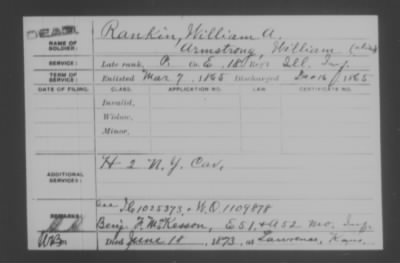 DEAD.
NAME OF SOLDIER: Rankin, William A.
Armstrong, William (alias)
SERVICE: Late rank, P. Co. E, 18 Reg't Ill. Inf.
TERM OF SERVICE: Enlisted Mar 7, 1865 Discharged Dec 16, 1865
DATE OF FILING. CLASS. APPLICATION NO. LAW. CERTIFICATE NO.
Invalid,
Widow,
Minor,
ADDITIONAL SERVICES: H 2 N.Y. Cav.
See 1025373 + W.O. 1109878
REMARKS: Benj. F. McKesson, E 51 + A 52 Mo. Inf.
Died June 18, 1873, at Lawrence, Kans.